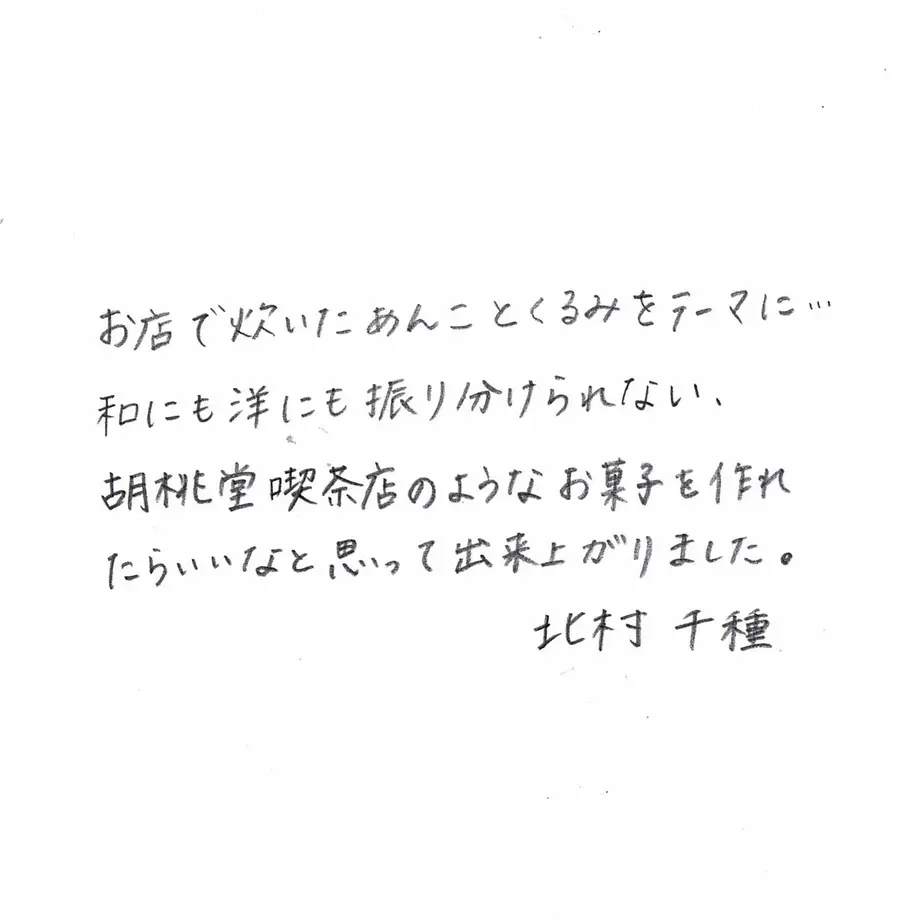 お店で炊いたあんことくるみをテーマに…
和にも洋にも振り分けられない、
胡桃堂喫茶店のようなお菓子を作れ
たらいいなと思って出来上がりました。
北村 千種